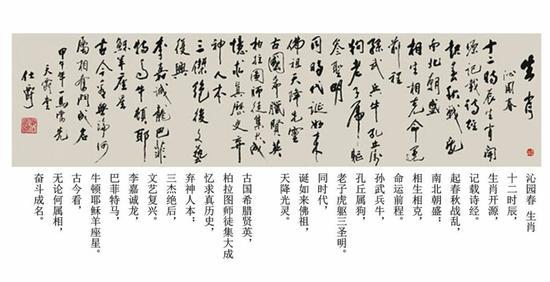 生肖
沁園春
十二時辰生肖開
源記載詩經
起春秋戰亂
南北朝盛
相生相克命運
前程
孫武兵牛孔丘屬
狗老子虎軀三
聖明
同時代誕如來
佛祖天降光靈
古國希臘賢英
柏拉圖師徒集大成
憶求真歷史棄
神人本
三傑絕後文藝
復興
李嘉誠龍巴菲
特馬牛頓耶
穌羊座星
古今看無論何
屬相奮鬥成名
甲午年一馬當先
天爵堂
仕爵
沁园春 生肖
十二时辰，
生肖开源，
记载诗经。
起春秋战乱，
南北朝盛：
相生相克，
命运前程。
孙武兵牛，
孔丘属狗，
老子虎躯三圣明。
同时代，
诞如来佛祖，
天降光灵。
古国希腊贤英，
柏拉图师徒集大成
忆求真历史，
弃神人本：
三杰绝后，
文艺复兴。
李嘉诚龙，
巴菲特马，
牛顿耶稣羊座星。
古今看，
无论何属相，
奋斗成名。